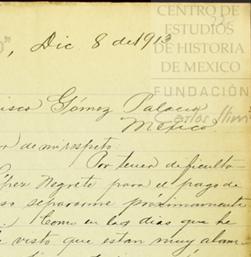 CENTRO DE
ESTUDIOS
DE HISTORIA
DE MEXICO
FUNDACIÓN
Carlos Slim
O", Dic 8 de 1913
isco Gómez Palacio
México
or de mi respeto:
Por tener dificulta-
ópez Negrete para el pago de
so separarme próximamente
. Como en los dias que he
visto que estan muy alar-